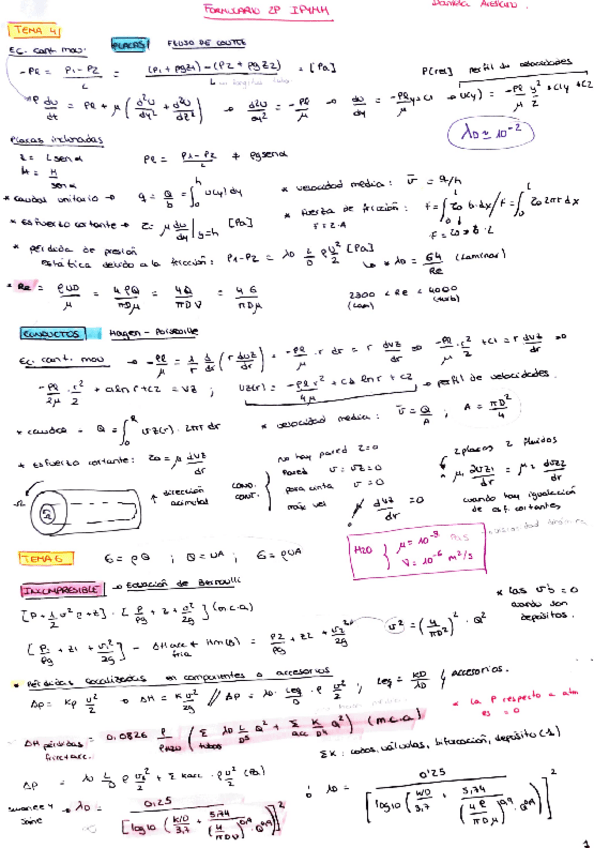 FORMULARIO 2P IPYMM
TEMA 4
EC. cant. mov.
PLACAS
FLUJO DE COUETTE
-Pl = (P1-P2)/L = ((P1+ρgz1)-(P2+ρgz2))/L = [Pa]
P(res) perfil de velocidades
ρ du/dt = Pl + μ(d²u/dy² + d²u/dz²) → d²u/dy² = -Pl/μ → du/dy = -Pl/μ y+C1 → u(y) = -Pl/μ y²/2 + C1y + C2
λ0 ≈ 10⁻²
Placas inclinadas
z = L sen α
Pl = (P1-P2)/L + ρg sen α
H = H/sen α
* caudal unitario → q = Q/b = ∫₀ʰ u(y) dy
* velocidad media: v̄ = q/h
* esfuerzo cortante → τ = μ du/dy |y=h [Pa]
* Fuerza de fricción: F = ∫₀ᴸ τ0 b·dx / F = ∫₀ᴸ τ0 2πr dx
F = τ·A
F = τ0·b·L
* pérdida de presión
estática debido a la fricción: P1-P2 = λ0 L/D ρ U²/2 [Pa]
* λ0 = 64/Re (Laminar)
* Re = ρUD/μ = 4ρQ/πDμ = 4Q/πDν = 4G/πDμ
2300 < Re < 4000
(Lam) (turb)
CONDUCTOS
Hagen - Poiseuille
Ec. cant. mov → -Pl/μ = 1/r d/dr (r dvz/dr) = -Pl/μ · r dr = r dvz/dr ⇒ -Pl/μ · r²/2 + C1 = r dvz/dr ⇒
-Pl/2μ · r²/2 + C1 ln r + C2 = vz ; vz(r) = -Pl r²/4μ + C1 ln r + C2 → perfil de velocidades.
* caudal → Q = ∫₀ᴿ vz(r) · 2πr dr
* velocidad media: v̄ = Q/A ; A = πD²/4
* esfuerzo cortante: τ0 = μ dvz/dr
no hay pared τ=0
Pared v = vz = 0
para cinta v = 0
máx vel μ dvz/dr = 0
COND. CONT.
2 placas 2 fluidos
* μ1 dvz1/dr = μ2 dvz2/dr
cuando hay igualación
de esf. cortantes
Ω
↑ dirección
acimutal
H2O { μ = 10⁻³ Pa·s
ν = 10⁻⁶ m²/s
TEMA 6
G = ρQ ; Q = UA ; G = ρUA
INCOMPRESIBLE
→ Ecuación de Bernoulli
* Las vD = 0
cuando son
depósitos.
[P + 1/2 v² ρ + z] · [P/ρg + z + v²/2g] (m.c.a)
[P1/ρg + z1 + v1²/2g] - ΔH acc + Hm(B) = P2/ρg + z2 + v2²/2g
fric
v² = (4/πD²)² · Q²
* Pérdidas localizadas en componentes o accesorios
Δp = Kρ v²/2 o ΔH = K v²/2g // Δp = λ0 · Leq/D · ρ v²/2 ; Leq = KD/λ0 } Accesorios.
* La P respecto a atm
es = 0
ΔH pérdidas = 0,0826 ρ/ρH2O (Σ λ0 L/D⁵ Q² + Σ K/D⁴ Q²) (m.c.a)
fric+acc. tubos acc
ΣK: codos, válvulas, bifurcación, depósito (1)
Δp = λ0 L/D ρ v²/2 + Σ Kacc · ρ v²/2 (Pa)
swamee y
Jaine → λ0 = 0,25/[log10 (K/D/3,7 + 5,74/((4/πDν)^0,9 · Q^0,9))]²
ó λ0 = 0,25/[log10 (K/D/3,7 + 5,74/((4ρ/πDμ)^0,9 · Q^0,9))]²
1